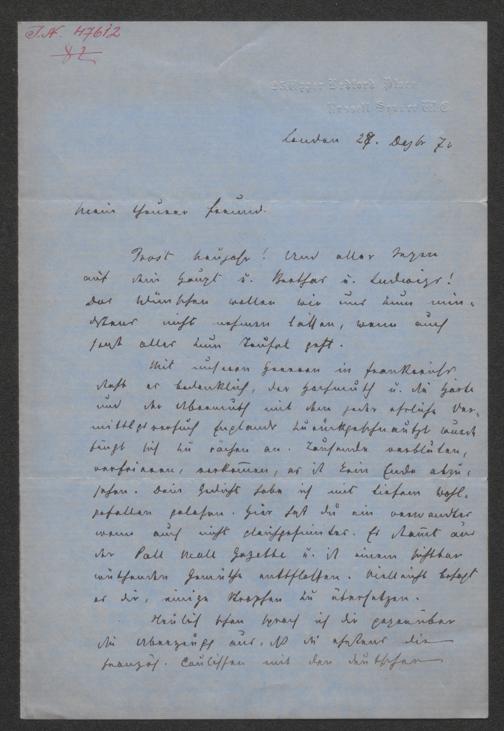 J.N. 47612
Upper Bedford Place
Russell Square W.C.
London 28. Dezbr 70
Mein theurer Freund.
Prost Neujahr! Und aller Segen
auf dein Haupt u. Berthas u. Ludwigs!
Das Wünschen wollen wir uns zum min-
destens nicht nehmen lassen, wenn auch
sonst alles zum Teufel geht.
Mit unseren Heeren in Frankreich
steht es bedenklich, der Hochmuth u. die Härte
und der Übermuth mit dem jeder ehrliche Ver-
mittlgsversuch Englands zurückgeschnautzt wurde
fängt sich zu rächen an. Tausende verbluten,
verfrieren, verkommen, es ist kein Ende abzu-
sehen. Dein Gedicht habe ich mit tiefem Wohl-
gefallen gelesen. Hier hast du ein verwandtes
wenn auch nicht gleichgesinntes. Es stammt aus
der Pall Mall Gazette u. ist einem sichtbar
wüthenden Gemüthe entflossen. Vielleicht behagt
es dir, einige Strophen zu übersetzen.
Neulich schon sprach ich dir gegenüber
die Überzeugg aus, die
französ. Coulissen mit den deutschen